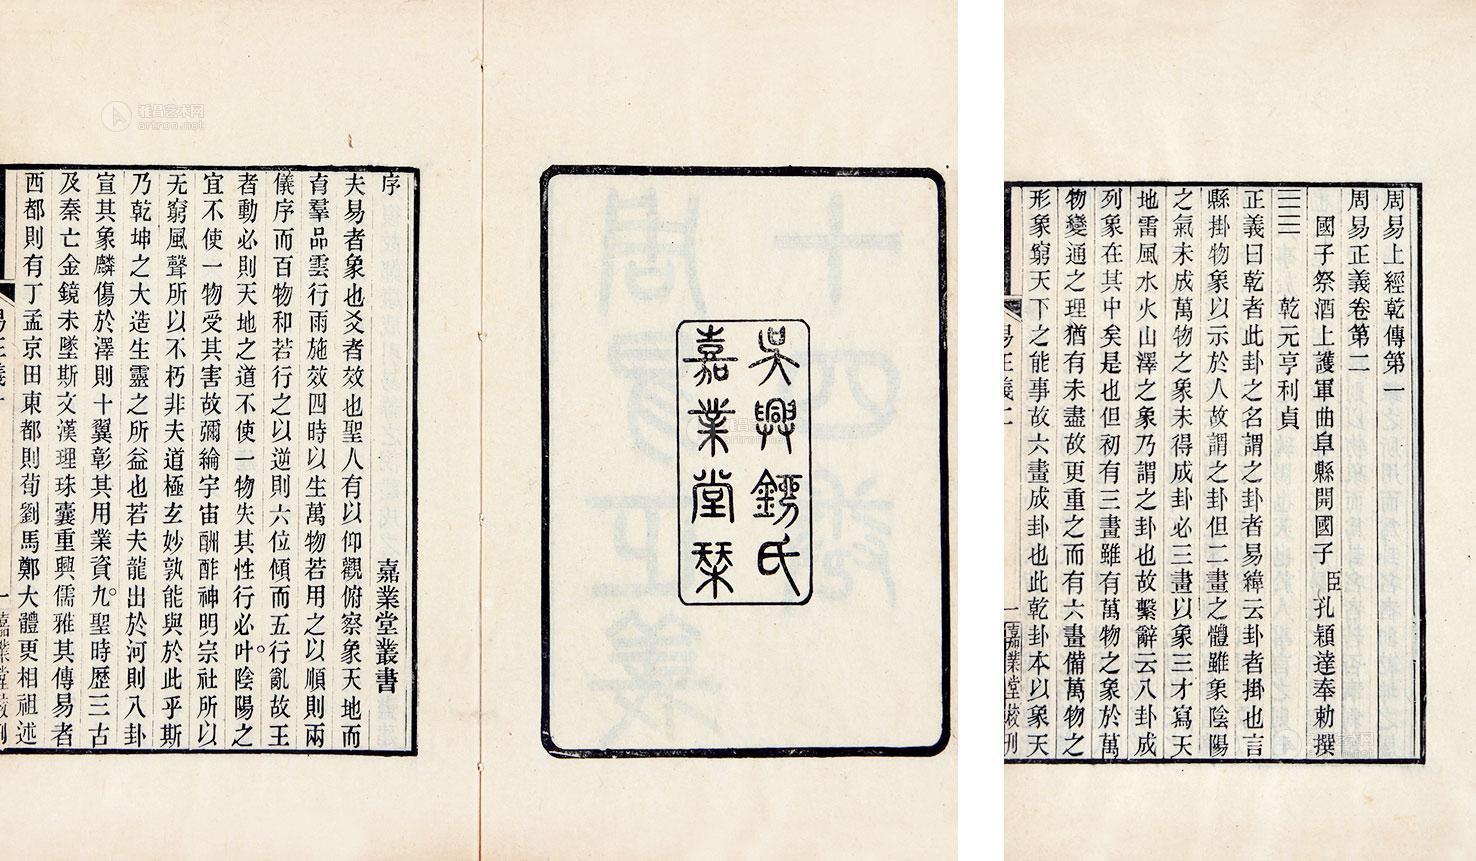 周易上經乾傳第一
周易正義卷第二
國子祭酒上護軍曲阜縣開國子臣孔穎達奉勅撰
乾元亨利貞
正義曰乾者此卦之名謂之卦者易緯云卦者掛也言
縣掛物象以示於人故謂之卦但二畫之體雖象陰陽
之氣未成萬物之象未得成卦必三畫以象三才寫天
地雷風水火山澤之象乃謂之卦也故繫辭云八卦成
列象在其中矣是也但初有三畫雖有萬物之象於萬
物變通之理猶有未盡故更重之而有六畫備萬物之
形象窮天下之能事故六畫成卦也此乾卦本以象天
易正義二
一
嘉業堂校刊
吳興劉氏
嘉業堂栞
序
嘉業堂叢書
夫易者象也爻者效也聖人有以仰觀俯察象天地而
育羣品雲行雨施效四時以生萬物若用之以順則兩
儀序而百物和若行之以逆則六位傾而五行亂故王
者動必則天地之道不使一物失其性行必叶陰陽之
宜不使一物受其害故彌綸宇宙酬酢神明宗社所以
无窮風聲所以不朽非夫道極玄妙孰能與於此乎斯
乃乾坤之大造生靈之所益也若夫龍出於河則八卦
宣其象麟傷於澤則十翼彰其用業資九聖時歷三古
及秦亡金鏡未墜斯文漢理珠囊重興儒雅其傳易者
西都則有丁孟京田東都則荀劉馬鄭大體更相祖述
雅昌艺术网
artron.net